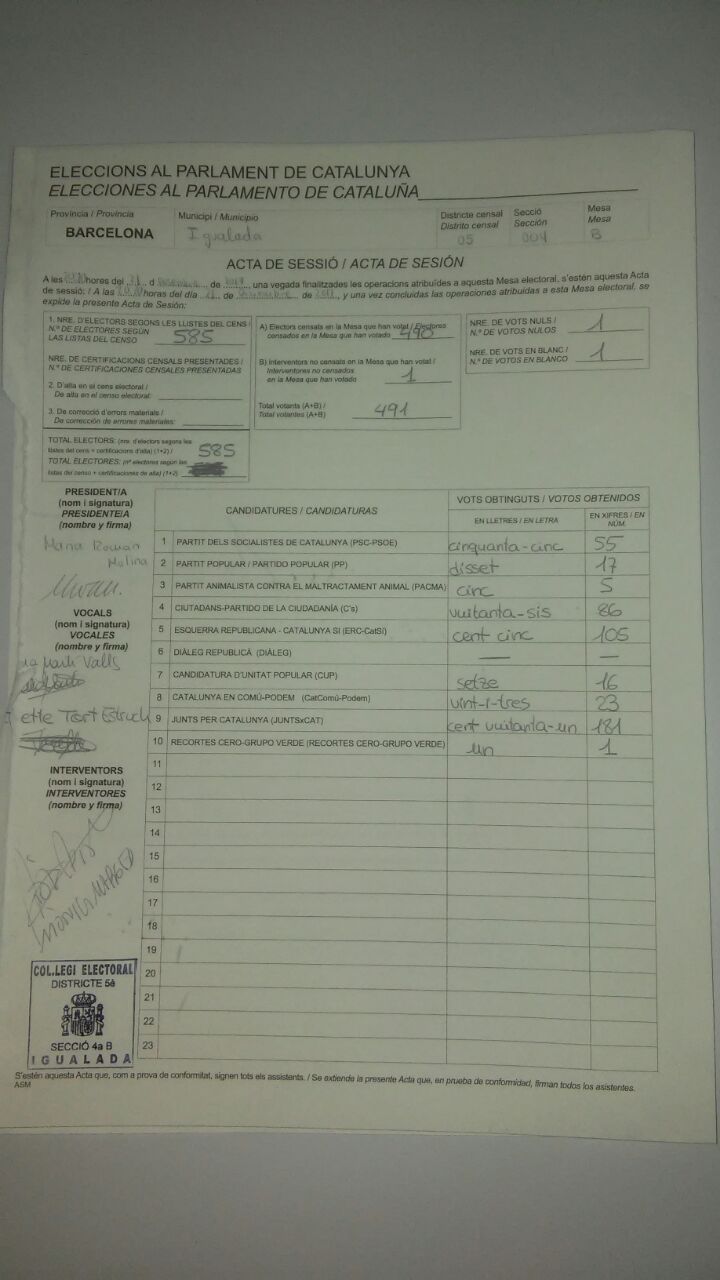 ELECCIONS AL PARLAMENT DE CATALUNYA
ELECCIONES AL PARLAMENTO DE CATALUÑA
Província / Provincia
BARCELONA
Municipi / Municipio
Igualada
Districte censal
Distrito censal
05
Secció
Sección
004
Mesa
Mesa
B
ACTA DE SESSIÓ / ACTA DE SESIÓN
A les hores del d de , una vegada finalitzades les operacions atribuïdes a aquesta Mesa electoral, s'estén aquesta Acta
de sessió: / A las horas del día de de , y una vez concluidas las operaciones atribuidas a esta Mesa electoral, se
expide la presente Acta de Sesión:
1. NRE. D'ELECTORS SEGONS LES LLISTES DEL CENS /
N.º DE ELECTORES SEGÚN
LAS LISTAS DEL CENSO 585
NRE. DE CERTIFICACIONS CENSALS PRESENTADES /
N.º DE CERTIFICACIONES CENSALES PRESENTADAS
2. D'alta en el cens electoral /
De alta en el censo electoral:
3. De correcció d'errors materials /
De corrección de errores materiales:
TOTAL ELECTORS: (nre. d'electors segons les
llistes del cens + certificacions d'alta) (1+2) / 585
TOTAL ELECTORES: (nº electores según las
listas del censo + certificaciones de alta) (1+2)
A) Electors censats en la Mesa que han votat / Electores
censados en la Mesa que han votado 490
B) Interventors no censats en la Mesa que han votat /
Interventores no censados
en la Mesa que han votado 1
Total votants (A+B) /
Total votantes (A+B) 491
NRE. DE VOTS NULS /
N.º DE VOTOS NULOS 1
NRE. DE VOTS EN BLANC /
N.º DE VOTOS EN BLANCO 1
PRESIDENT/A
(nom i signatura)
PRESIDENTE/A
(nombre y firma)
Maria Roman
Molina
VOCALS
(nom i signatura)
VOCALES
(nombre y firma)
Martí Valls
Tort Estruch
INTERVENTORS
(nom i signatura)
INTERVENTORES
(nombre y firma)
CANDIDATURES / CANDIDATURAS
VOTS OBTINGUTS / VOTOS OBTENIDOS
EN LLETRES / EN LETRA
EN XIFRES / EN
NÚM.
1 PARTIT DELS SOCIALISTES DE CATALUNYA (PSC-PSOE) cinquanta-cinc 55
2 PARTIT POPULAR / PARTIDO POPULAR (PP) disset 17
3 PARTIT ANIMALISTA CONTRA EL MALTRACTAMENT ANIMAL (PACMA) cinc 5
4 CIUTADANS-PARTIDO DE LA CIUDADANÍA (C's) vuitanta-sis 86
5 ESQUERRA REPUBLICANA - CATALUNYA SI (ERC-CatSí) cent cinc 105
6 DIÀLEG REPUBLICÀ (DIÀLEG) — —
7 CANDIDATURA D'UNITAT POPULAR (CUP) setze 16
8 CATALUNYA EN COMÚ-PODEM (CatComú-Podem) vint-i-tres 23
9 JUNTS PER CATALUNYA (JUNTSxCAT) cent vuitanta-un 181
10 RECORTES CERO-GRUPO VERDE (RECORTES CERO-GRUPO VERDE) un 1
11
12
13
14
15
16
17
18
19
20
21
22
23
COL.LEGI ELECTORAL
DISTRICTE 5è
SECCIÓ 4a B
IGUALADA
S'estén aquesta Acta que, com a prova de conformitat, signen tots els assistents. / Se extiende la presente Acta que, en prueba de conformidad, firman todos los asistentes.
ASM